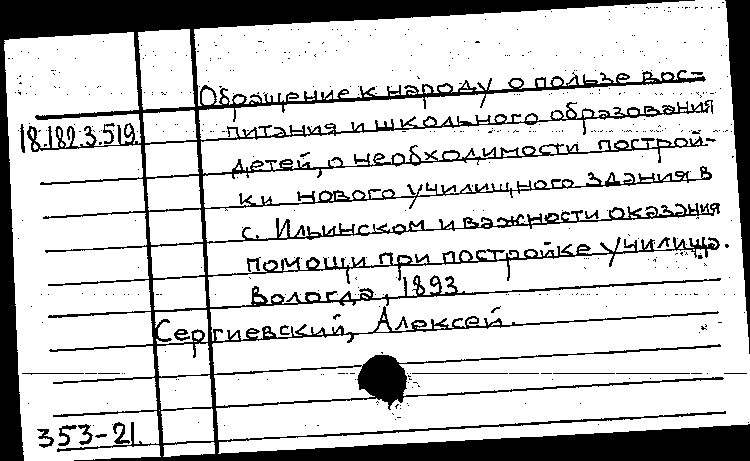 Обращение к народу о пользе вос=
18.182.3.519.
питания и школьного образования
детей, о необходимости построй-
ки нового училищного здания в
с. Ильинском и важности оказания
помощи при постройке училища.
Вологда, 1893.
Сергиевский, Алексей.
353-21.